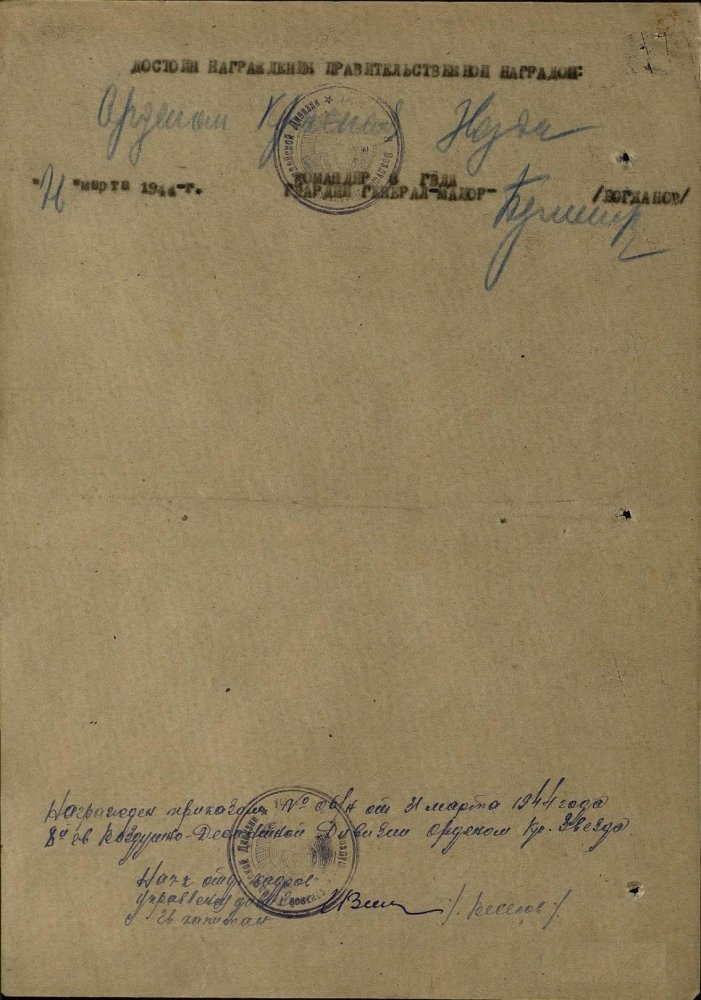 ДОСТОИН НАГРАЖДЕНИЯ ПРАВИТЕЛЬСТВЕННОЙ НАГРАДОЙ:
Орденом Красной
" "марта 1944-г.
КОМАНДИР 8 ГВДД
ГВАРДИИ ГЕНЕРАЛ-МАЙОР-
/БОГДАНОВ/
Награжден приказом № от 31 марта 1944 года
8й гв Воздушно-Десантной Дивизии орденом Кр. Звезда
Нач. отд. кадров
гв капитан
/Веселов/